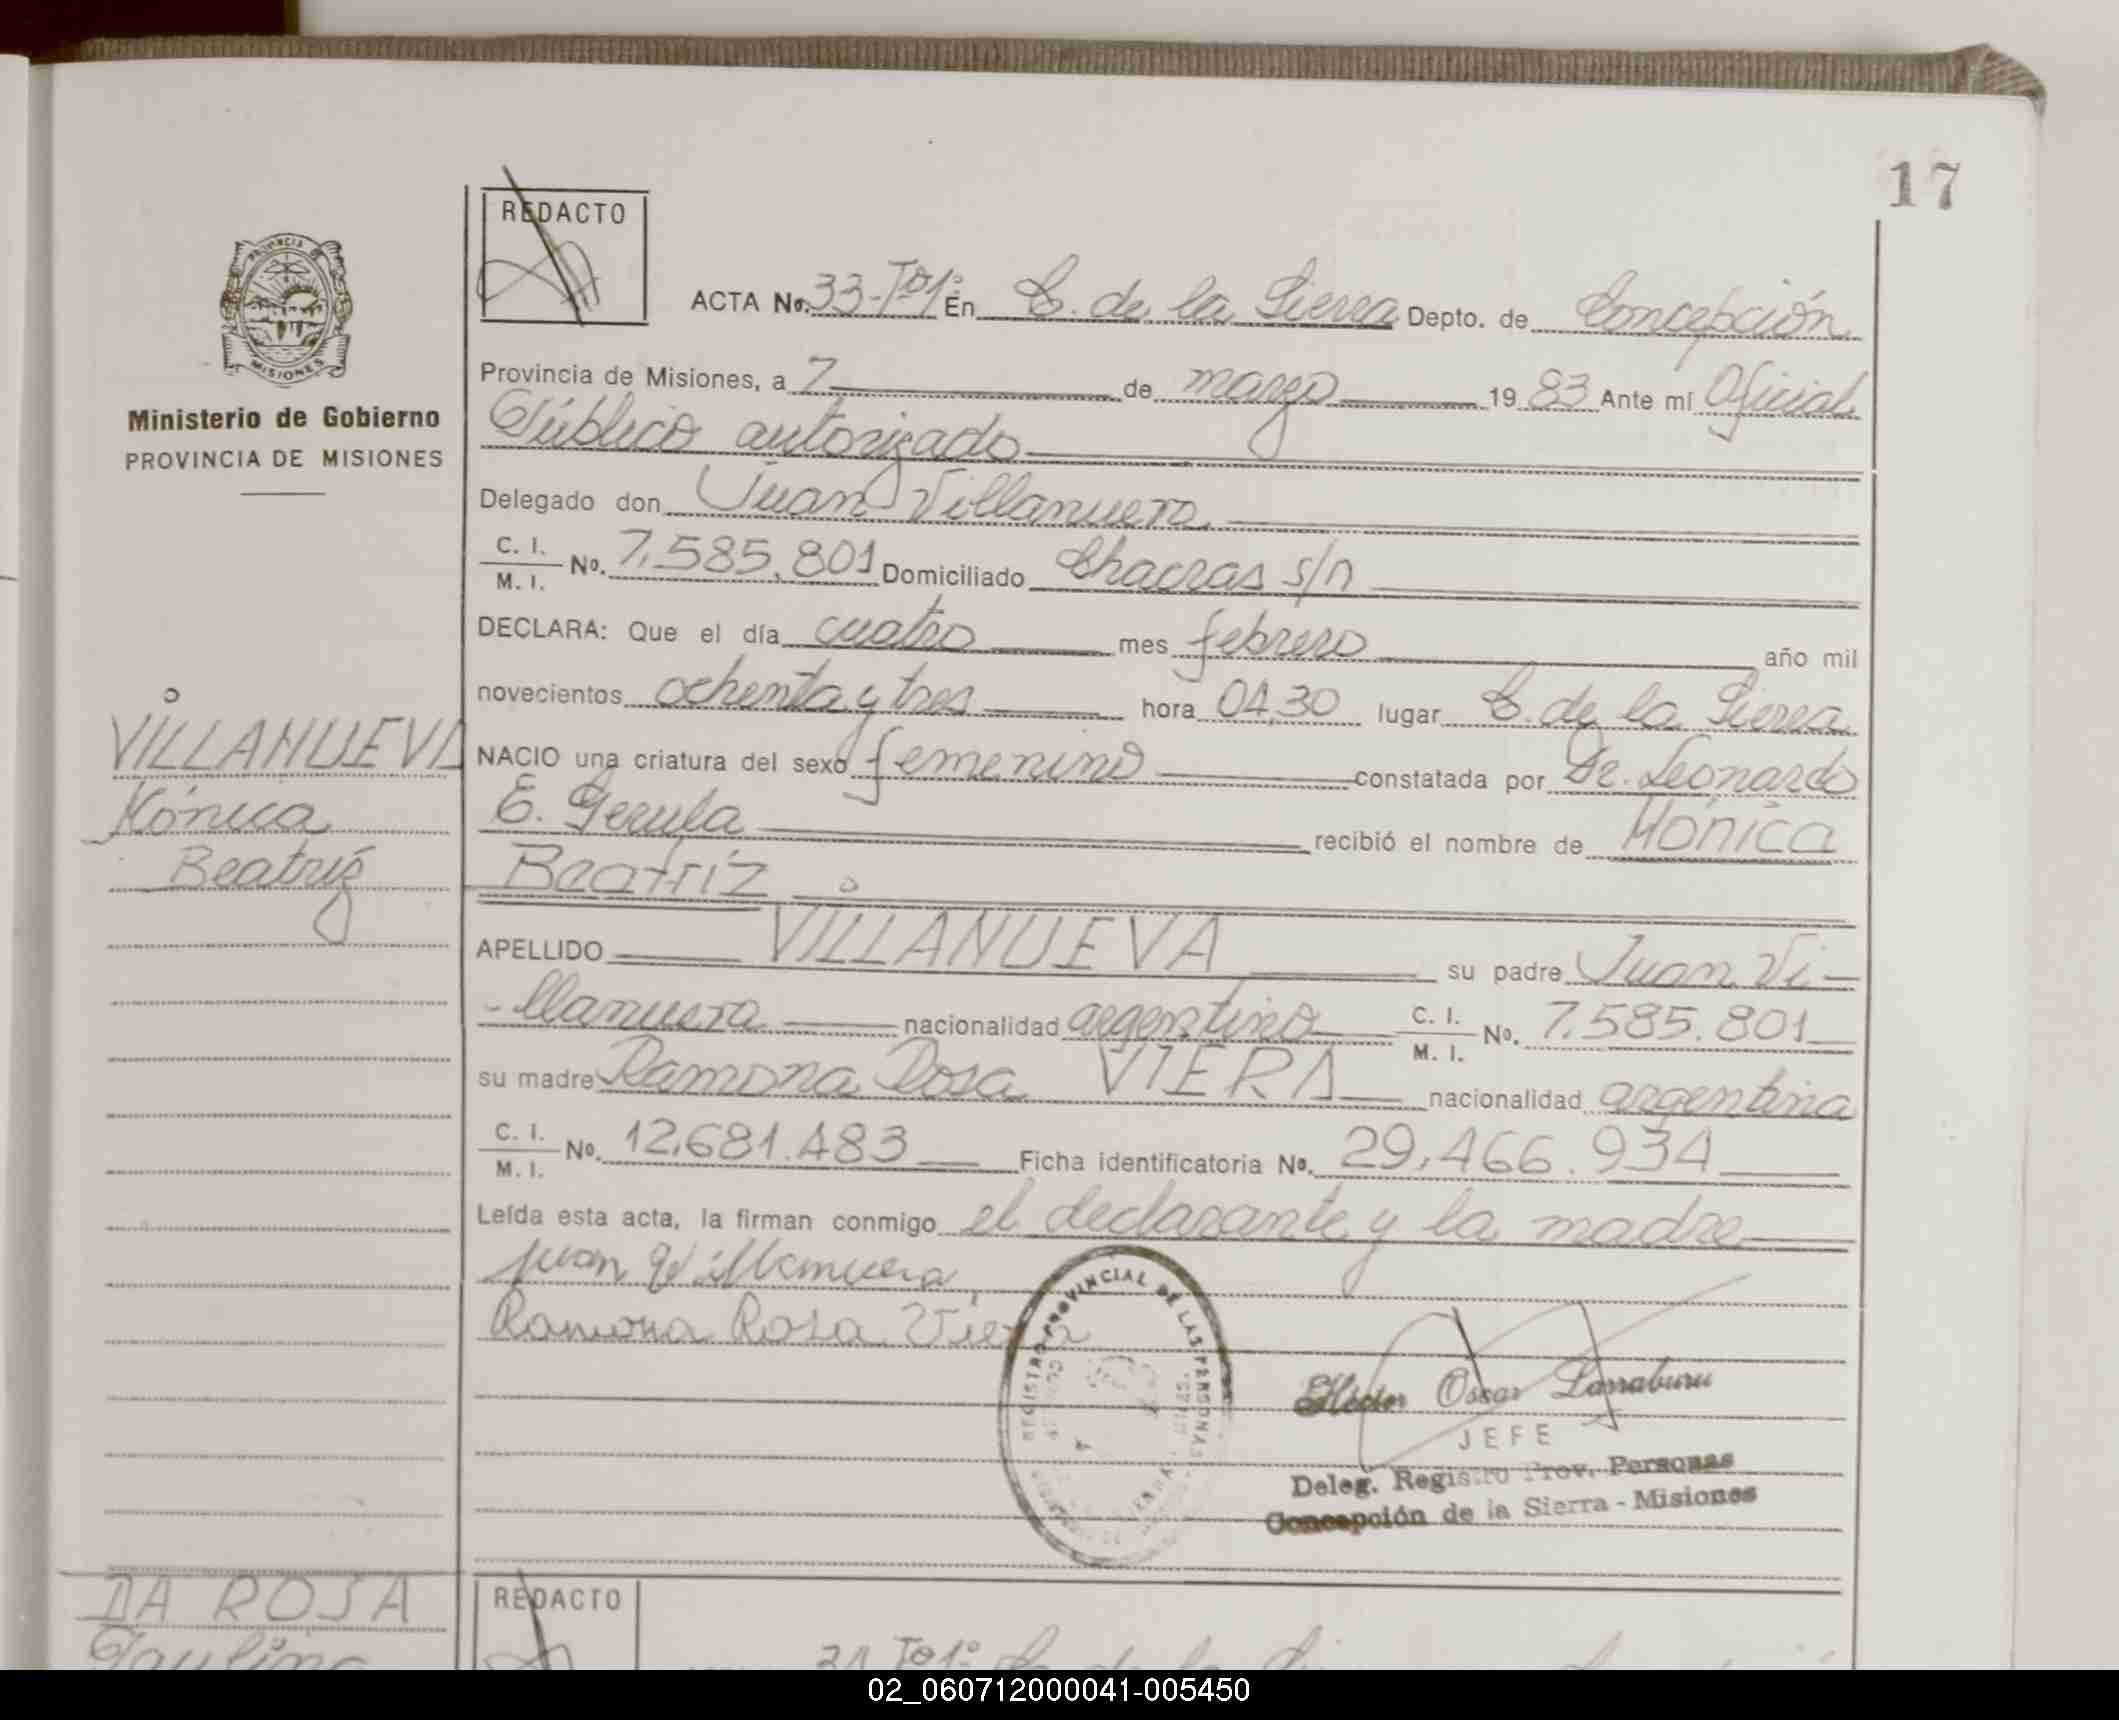 17
REDACTO
PROVINCIA DE
MISIONES
Ministerio de Gobierno
PROVINCIA DE MISIONES
ACTA No. 33-Tº1º En C. de la Sierra Depto. de Concepción
Provincia de Misiones, a 7 de marzo 1983 Ante mí Oficial
Público autorizado
Delegado don Juan Villanueva
C. I.
M. I. No. 7.585.801 Domiciliado Chacras s/n
DECLARA: Que el día cuatro mes febrero año mil
novecientos ochenta y tres hora 04,30 lugar C. de la Sierra
NACIO una criatura del sexo femenino constatada por Dr. Leonardo
E. Gerula recibió el nombre de Mónica
Beatriz
APELLIDO VILLANUEVA su padre Juan Vi-
-llanueva nacionalidad argentino C. I. M. I. No. 7.585.801
su madre Ramona Rosa VIERA nacionalidad argentina
C. I.
M. I. No. 12.681.483 Ficha identificatoria No. 29.466.934
Leída esta acta, la firman conmigo el declarante y la madre
Juan Villanueva
Ramona Rosa Viera
REGISTRO PROVINCIAL DE LAS PERSONAS
Héctor Oscar Larraburu
JEFE
Deleg. Registro Prov. Personas
Concepción de la Sierra - Misiones
VILLANUEVA
Mónica
Beatriz
DA ROSA
Paulino
REDACTO
34 Tº1º
02_060712000041-005450